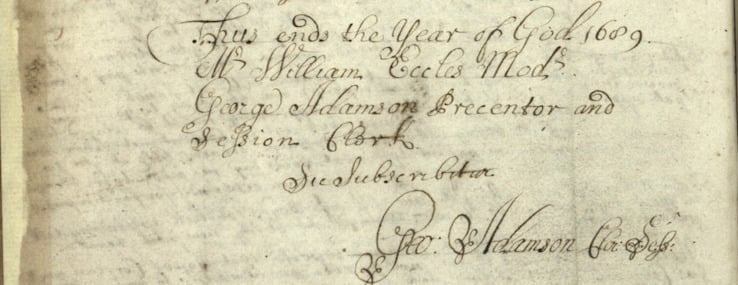 Thus ends the Year of God 1689
Mr William Eccles Modr
George Adamson Precentor and
Session Clerk
Sic Subscribitur
Geo: Adamson Cler: Sess: